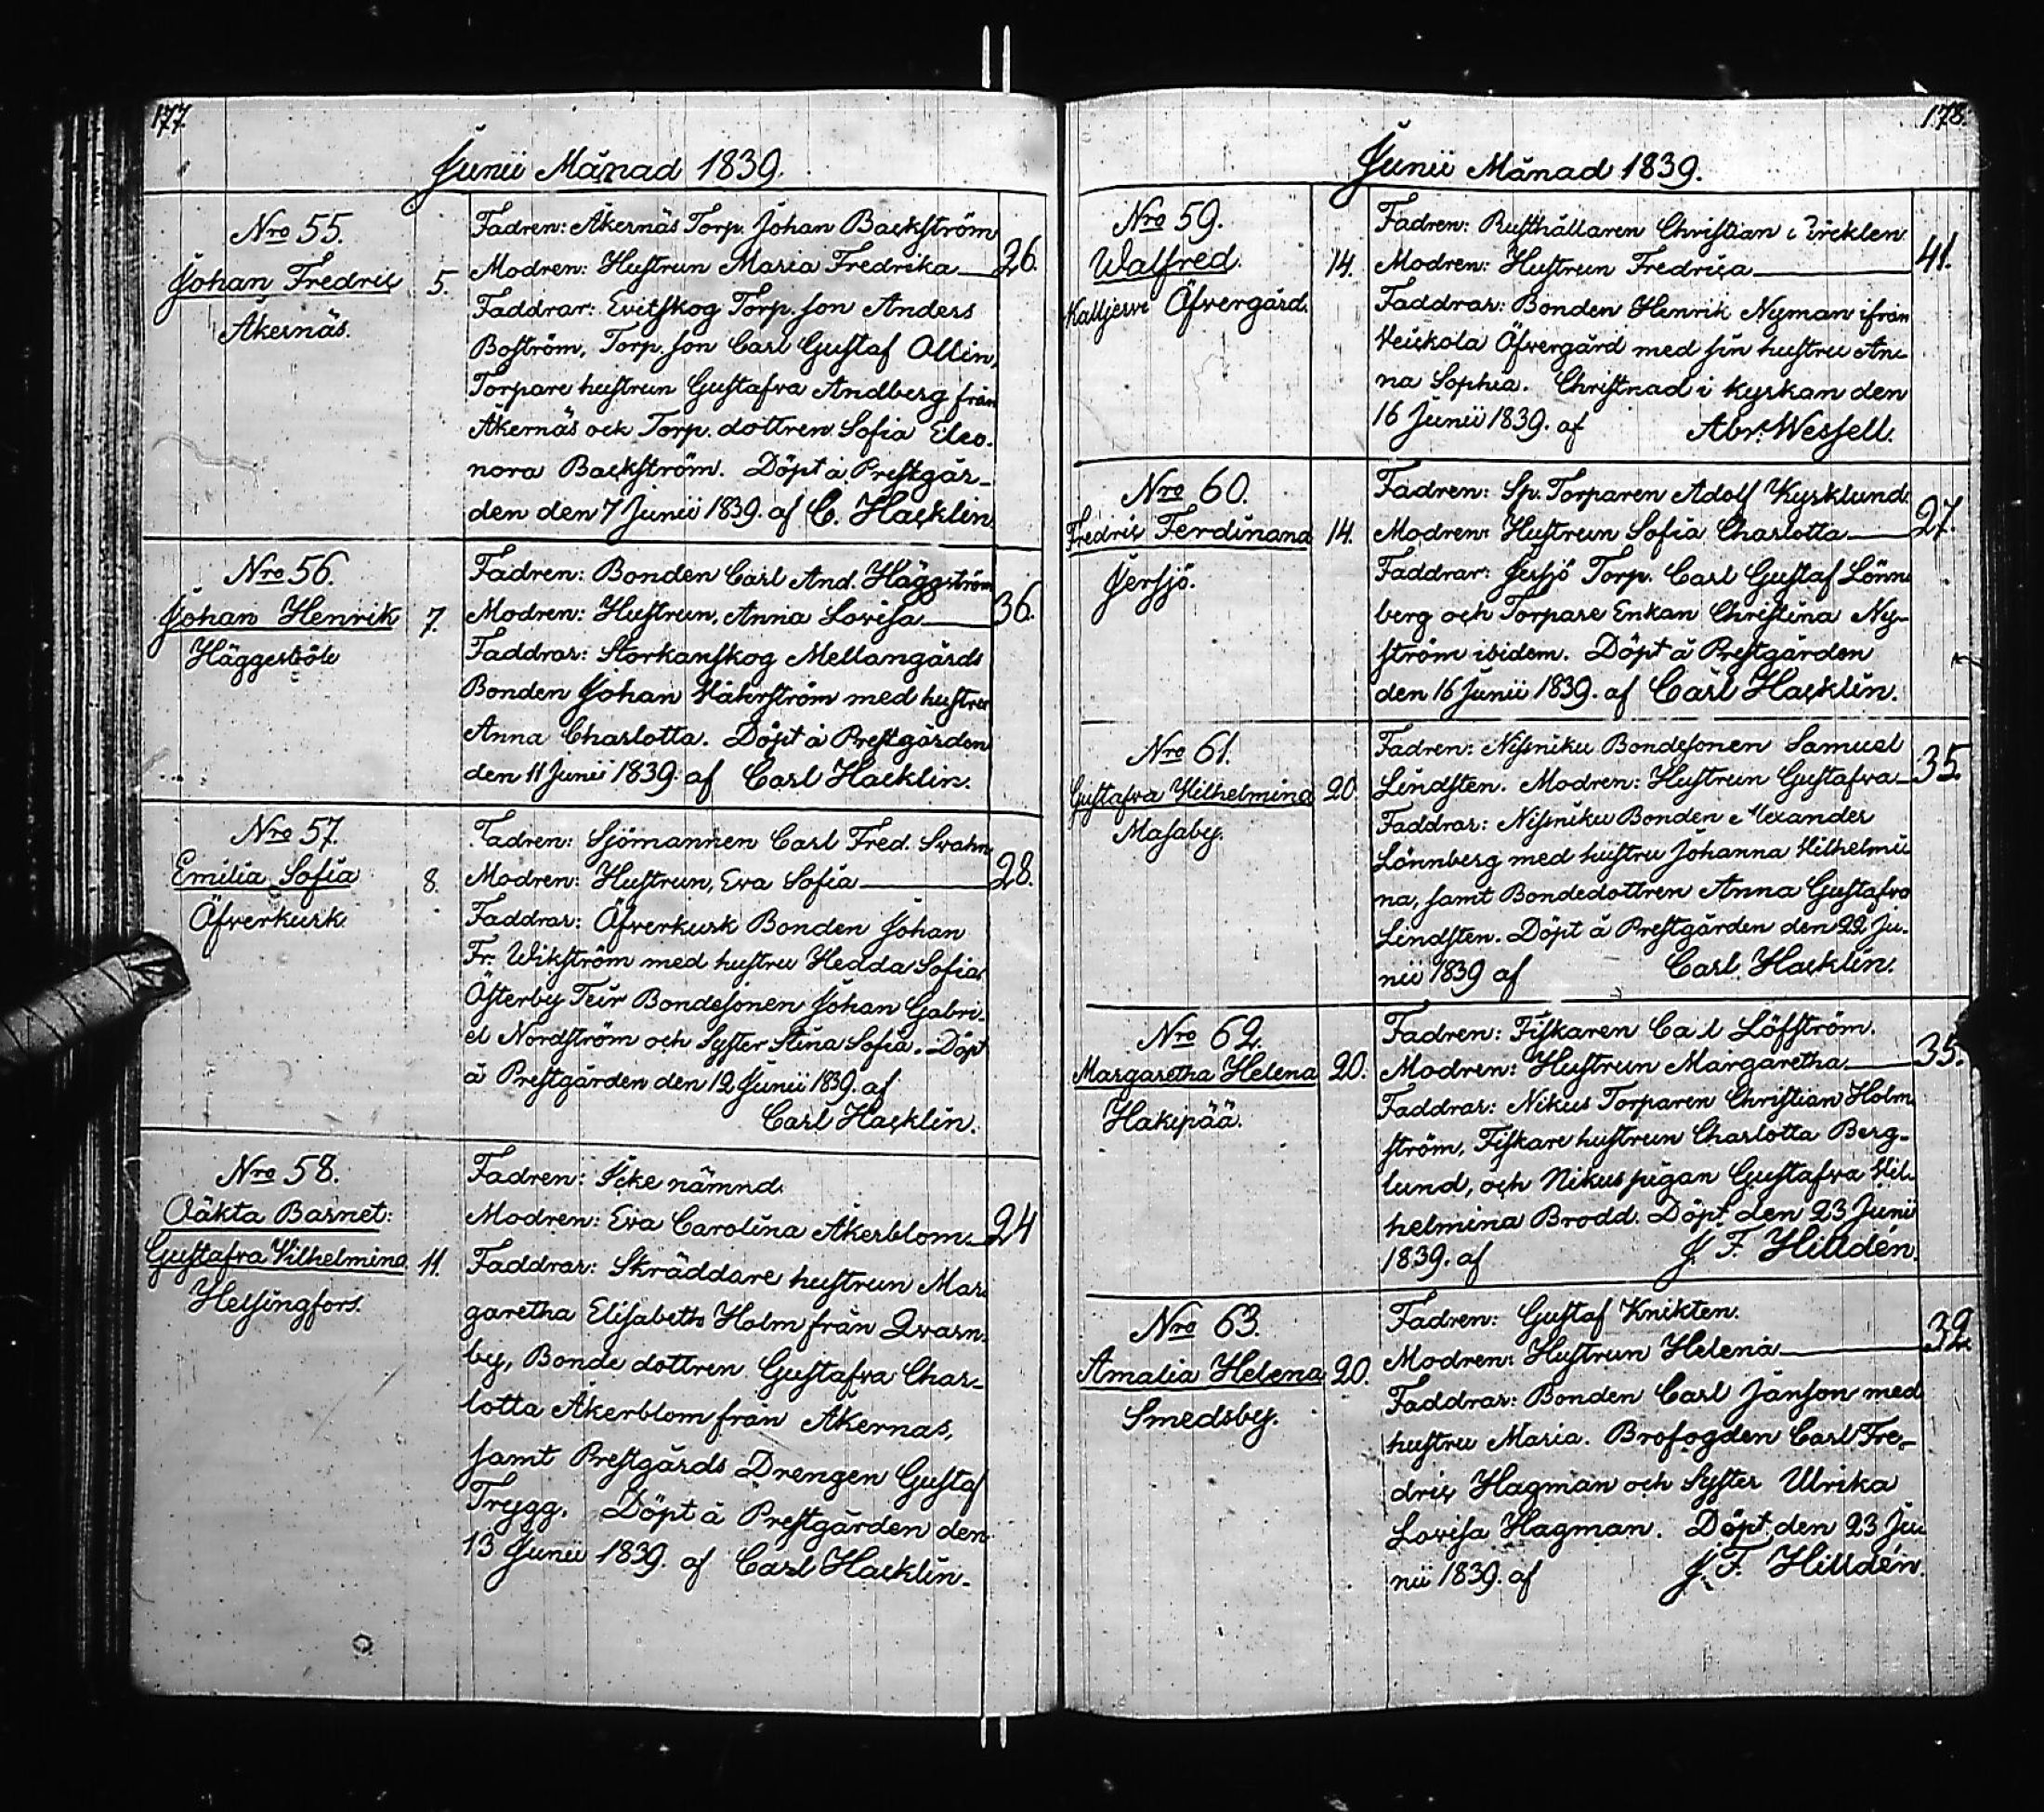 177.
Junii Månad 1839.
Nro 55.
Johan Fredric
Åkernäs.
5.
Fadren: Åkernäs Torp. Johan Backström
Modren: Hustrun Maria Fredrika
26.
Faddrar: Evitskog Torp. son Anders
Boström, Torp. son Carl Gustaf Ollin,
Torpare hustrun Gustafva Andberg från
Åkernäs och Torp. dottren Sofia Eleo-
nora Backström. Döpt å Prestgår-
den den 7 Junii 1839. af C. Hacklin.
Nro 56.
Johan Henrik
Häggesböle
7.
Fadren: Bonden Carl And. Häggström
Modren: Hustrun, Anna Lovisa
36.
Faddrar: Storkanskog Mellangårds
Bonden Johan Wåhrström med hustru
Anna Charlotta. Döpt å Prestgården
den 11 Junii 1839. af Carl Hacklin.
Nro 57.
Emilia Sofia
Öfverkurk.
8.
Fadren: Sjömannen Carl Fred. Svahn
Modren: Hustrun, Eva Sofia
28.
Faddrar: Öfverkurk Bonden Johan
Fr. Wikström med hustru Hedda Sofia,
Österby Teir Bondesonen Johan Gabri-
el Nordström och Syster Stina Sofia. Döpt
å Prestgården den 12 Junii 1839. af
Carl Hacklin.
Nro 58.
Oäkta Barnet:
Gustafva Vilhelmina
Helsingfors.
11.
Fadren: Icke nämnd.
Modren: Eva Carolina Åkerblom
24
Faddrar: Skräddare hustrun Mar-
garetha Elisabeth Holm från Qvarn-
by, Bonde dottren Gustafva Char-
lotta Åkerblom från Åkernas,
samt Prestgårds Drengen Gustaf
Trygg. Döpt å Prestgården den
13 Junii 1839. af Carl Hacklin.
178.
Junii Månad 1839.
Nro 59.
Walfred.
Kalljerve Öfvergård.
14.
Fadren: Rusthållaren Christian
Modren: Hustrun Fredrica
41.
Faddrar: Bonden Henrik Nyman ifrån
Veickola Öfvergård med sin hustru An-
na Sophia. Christnad i kyrkan den
16 Junii 1839. af Abr. Wessell.
Nro 60.
Fredric Ferdinand
Jersjö.
14.
Fadren: Sp. Torparen Adolf Kyrklund.
Modren: Hustrun Sofia Charlotta
27.
Faddrar: Jersjö Torp. Carl Gustaf Lönn-
berg och Torpare Enkan Christina Ny-
ström ibidem. Döpt å Prestgården
den 16 Junii 1839. af Carl Hacklin.
Nro 61.
Gustafva Wilhelmina
Masaby.
20.
Fadren: Nissniku Bondesonen Samuel
Lindsten. Modren: Hustrun Gustafva
35.
Faddrar: Nissniku Bonden Alexander
Lönnberg med hustru Johanna Wilhelmi-
na, samt Bondedottren Anna Gustafva
Lindsten. Döpt å Prestgården den 22 Ju-
nii 1839 af Carl Hacklin.
Nro 62.
Margaretha Helena
Hakipää.
20.
Fadren: Fiskaren Carl Löfström.
Modren: Hustrun Margaretha
35.
Faddrar: Nikus Torparen Christian Holm-
ström, Fiskare hustrun Charlotta Berg-
lund, och Nikus pigan Gustafva Wil-
helmina Brodd. Döpt den 23 Junii
1839. af J. F. Hilldén.
Nro 63.
Amalia Helena
Smedsby.
20.
Fadren: Gustaf Knikten.
Modren: Hustrun Helena
32.
Faddrar: Bonden Carl Janson med
hustru Maria. Brofogden Carl Fre-
dric Hagman och Syster Ulrika
Lovisa Hagman. Döpt den 23 Ju-
nii 1839. af J. F. Hilldén.